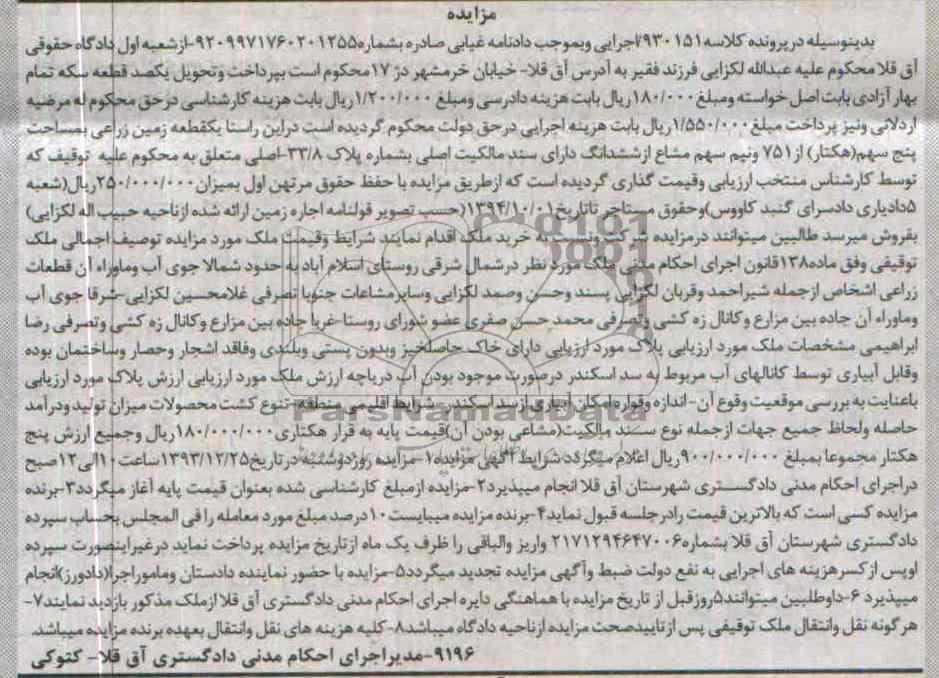 مزایده
بدینوسیله در پرونده کلاسه ۹۳۰۱۵۱/اجرایی وبموجب دادنامه غیابی صادره بشماره ۹۲۰۹۹۷۱۷۶۰۲۰۱۲۵۵-ازشعبه اول دادگاه حقوقی
آق قلا محکوم علیه عبدالله لکزایی فرزند فقیر به آدرس آق قلا- خیابان خرمشهر دژ ۱۷ محکوم است بپرداخت وتحویل یکصد قطعه سکه تمام
بهار آزادی بابت اصل خواسته ومبلغ ۱۸۰/۰۰۰ریال بابت هزینه دادرسی ومبلغ ۱/۲۰۰/۰۰۰ ریال بابت هزینه کارشناسی درحق محکوم له مرضیه
اردلانی ونیز پرداخت مبلغ ۱/۵۵۰/۰۰۰ریال بابت هزینه اجرایی درحق دولت محکوم گردیده است دراین راستا یکقطعه زمین زراعی بمساحت
پنج سهم(هکتار) از ۷۵۱ ونیم سهم مشاع ازششدانگ دارای سند مالکیت اصلی بشماره پلاک ۳۳/۸-اصلی متعلق به محکوم علیه توقیف که
توسط کارشناس منتخب ارزیابی وقیمت گذاری گردیده است که ازطریق مزایده با حفظ حقوق مرتهن اول بمیزان ۲۵۰/۰۰۰/۰۰۰ریال(شعبه
۵دادیاری دادسرای گنبد کاووس)وحقوق مستاجر تاتاریخ ۱۳۹۴/۱۰/۰۱(حسب تصویر قولنامه اجاره زمین ارائه شده ازناحیه حبیب اله لکزایی)
بفروش میرسد طالبین میتوانند درمزایده شرکت ونسبت به خرید ملک اقدام نمایند شرایط وقیمت ملک مورد مزایده توصیف اجمالی ملک
توقیفی وفق ماده۱۳۸قانون اجرای احکام مدنی ملک مورد نظر درشمال شرقی روستای اسلام آباد به حدود شمالا جوی آب وماوراء آن قطعات
زراعی اشخاص ازجمله شیراحمد وقربان لکزایی پسند وحسن وصمد لکزایی وسایرمشاعات جنوبا تصرفی غلامحسین لکزایی-شرقا جوی آب
وماوراء آن جاده بین مزارع وکانال زه کشی وتصرفی محمد حسن صفری عضو شورای روستا-غربا جاده بین مزارع وکانال زه کشی وتصرفی رضا
ابراهیمی مشخصات ملک مورد ارزیابی پلاک مورد ارزیابی دارای خاک حاصلخیز وبدون پستی وبلندی وفاقد اشجار وحصار وساختمان بوده
وقابل آبیاری توسط کانالهای آب مربوط به سد اسکندر درصورت موجود بودن آب دریاچه ارزش ملک مورد ارزیابی ارزش پلاک مورد ارزیابی
باعنایت به بررسی موقعیت وقوع آن-اندازه وقواره امکان آبیاری ازسد اسکندر-شرایط اقلیمی منطقه-تنوع کشت محصولات میزان تولید ودرآمد
حاصله ولحاظ جمیع جهات ازجمله نوع سند مالکیت(مشاعی بودن آن)قیمت پایه به قرار هکتاری ۱۸۰/۰۰۰/۰۰۰ریال وجمیع ارزش پنج
هکتار مجموعا بمبلغ ۹۰۰/۰۰۰/۰۰۰ریال اعلام میگردد شرایط آگهی مزایده۱-مزایده روزدوشنبه در تاریخ۱۳۹۳/۱۲/۲۵ساعت۱۰الی۱۲صبح
دراجرای احکام مدنی دادگستری شهرستان آق قلا انجام میپذیرد۲-مزایده ازمبلغ کارشناسی شده بعنوان قیمت پایه آغاز میگردد۳-برنده
مزایده کسی است که بالاترین قیمت رادرجلسه قبول نماید۴-برنده مزایده میبایست ۱۰درصد مبلغ مورد معامله را فی المجلس بحساب سپرده
دادگستری شهرستان آق قلا بشماره۲۱۷۱۲۹۴۶۴۷۰۰۶ واریز والباقی را ظرف یک ماه ازتاریخ مزایده پرداخت نماید درغیراینصورت سپرده
اوپس ازکسرهزینه های اجرایی به نفع دولت ضبط وآگهی مزایده تجدید میگردد۵-مزایده با حضور نماینده دادستان ومامور اجرا(دادورز)انجام
میپذیرد ۶-داوطلبین میتوانند۵روزقبل از تاریخ مزایده با هماهنگی دایره اجرای احکام مدنی دادگستری آق قلا ازملک مذکور بازدید نمایند۷-
هرگونه نقل وانتقال ملک توقیفی پس ازتاییدصحت مزایده ازناحیه دادگاه میباشد۸-کلیه هزینه های نقل وانتقال بعهده برنده مزایده میباشد.
۹۱۹۶-مدیراجرای احکام مدنی دادگستری آق قلا- کتوکی
ParsNamadData